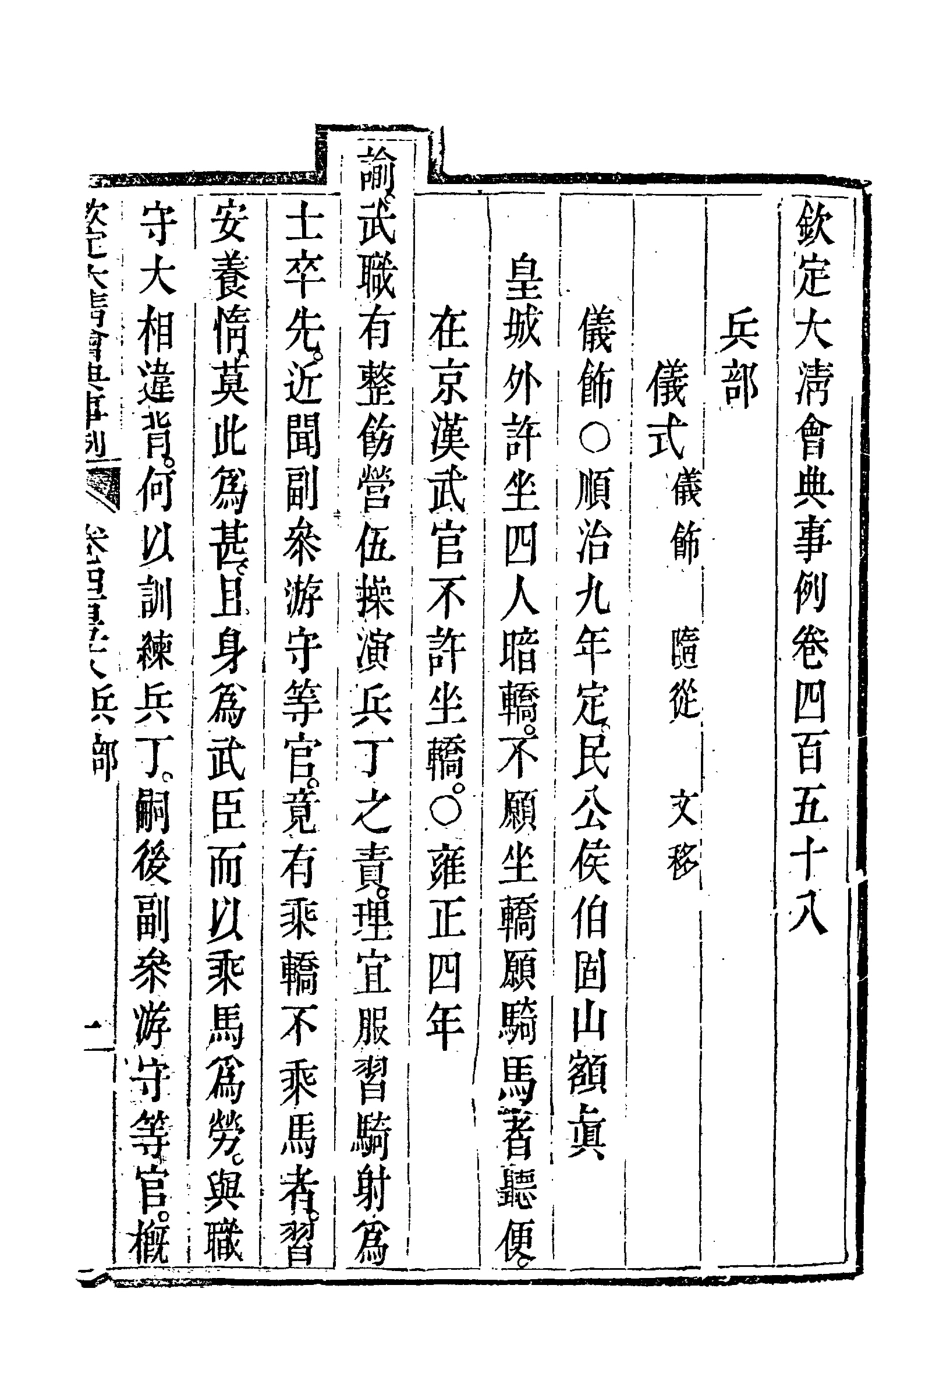 欽定大淸會典事例卷四百五十八
兵部
儀式 儀飾 隨從 文移
儀飾○順治九年定、民公侯伯固山額眞
皇城外許坐四人暗轎。不願坐轎願騎馬者聽便。
在京漢武官不許坐轎。○雍正四年
諭、武職有整飭營伍操演兵丁之責。理宜服習騎射爲
士卒先。近聞副叅游守等官。竟有乘轎不乘馬者。習
安養惰、莫此爲甚。且身爲武臣而以乘馬爲勞。與職
守大相違背。何以訓練兵丁。嗣後副叅游守等官。概
欽定大淸會典事例 卷四百五十八 兵部 一